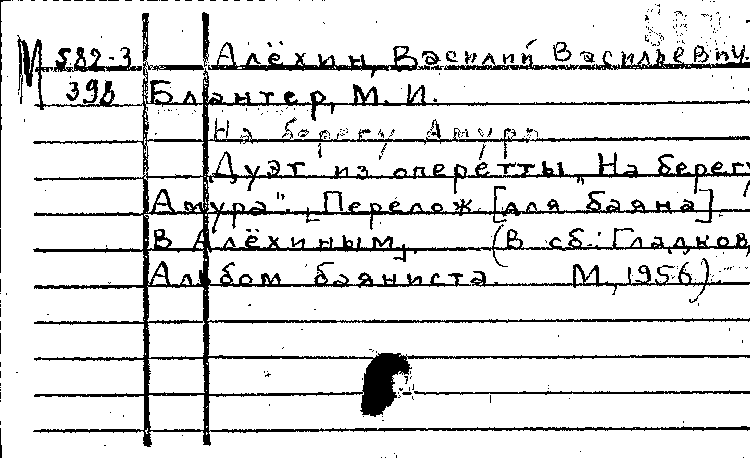 М 582-3 Алёхин, Василий Васильевич.
398 Блантер, М. И.
На берегу Амура
Дуэт из оперетты „На берегу
Амура". [Перелож. [для баяна]
В. Алёхиным]. (В сб.: Гладков,
Альбом баяниста. М., 1956).